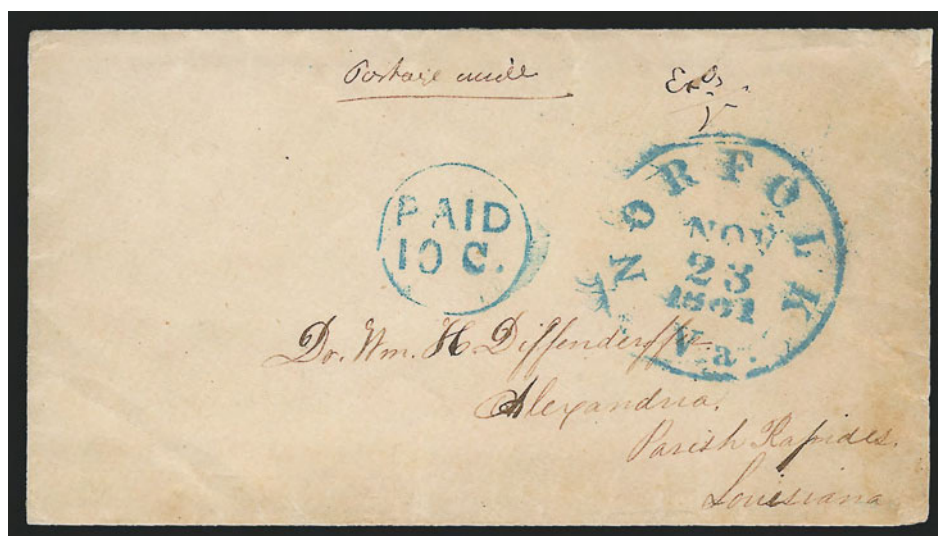 Postage
PAID
10 C.
NORFOLK
NOV
23
1861
Va.
Dr. Wm. H. Diffenderffer
Alexandria.
Parish Rapides.
Louisiana